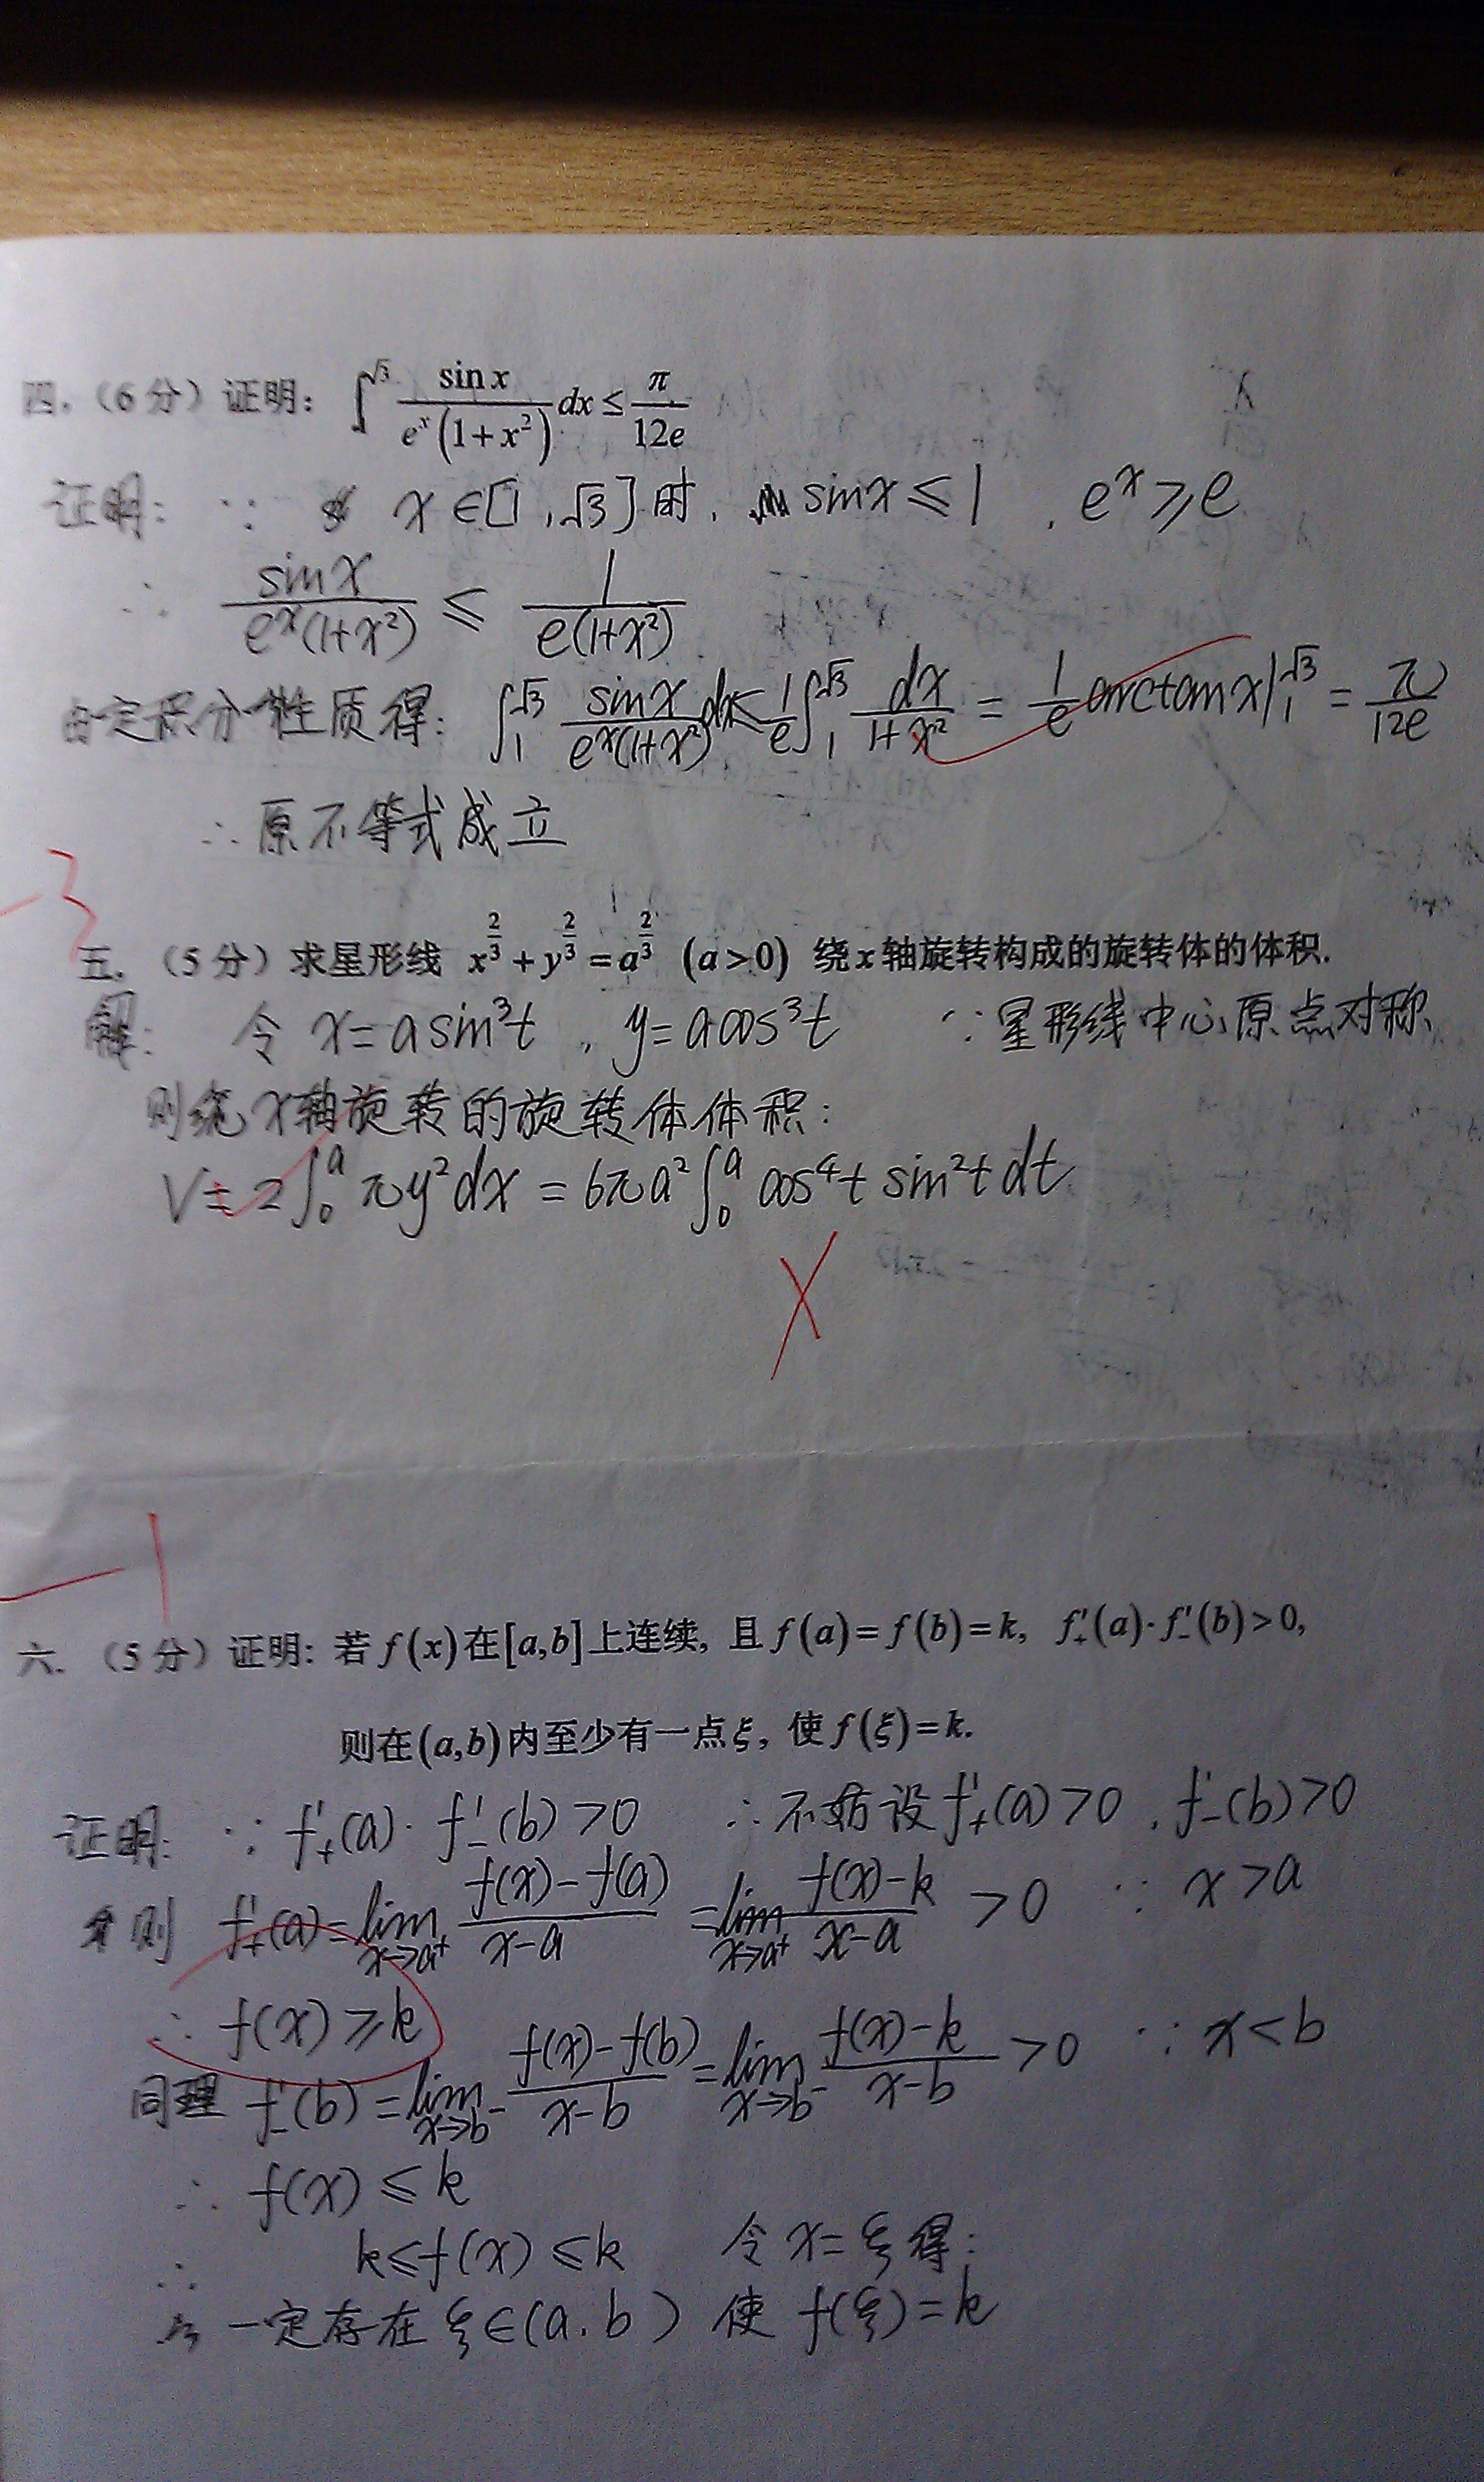 四.（6分）证明: ∫₁^√3 sin x / (eˣ(1+x²)) dx ≤ π/12e
证明: ∵ x∈[1,√3]时, sinx ≤ 1 , eˣ ≥ e
∴ sinx / (eˣ(1+x²)) ≤ 1 / (e(1+x²))
由定积分性质得: ∫₁^√3 sinx / (eˣ(1+x²)) dx ≤ 1/e ∫₁^√3 dx / (1+x²) = 1/e arctanx |₁^√3 = π/12e
∴ 原不等式成立
-3
五.（5分）求星形线 x^(2/3) + y^(2/3) = a^(2/3) (a>0) 绕x轴旋转构成的旋转体的体积.
解: 令 x = a sin³t , y = a cos³t ∵ 星形线中心原点对称
则绕x轴旋转的旋转体体积:
V = 2∫₀^a πy²dx = 6πa²∫₀^a cos⁴t sin²t dt
-1
六.（5分）证明: 若f(x)在[a,b]上连续, 且f(a)=f(b)=k, f₊′(a)·f₋′(b)>0,
则在(a,b)内至少有一点ξ, 使f(ξ)=k.
证明: ∵ f₊′(a)·f₋′(b)>0 ∴ 不妨设f₊′(a)>0 , f₋′(b)>0
则 f₊′(a) = lim x→a⁺ (f(x)-f(a))/(x-a) = lim x→a⁺ (f(x)-k)/(x-a) >0 ∵ x>a
∴ f(x) ≥ k
同理 f₋′(b) = lim x→b⁻ (f(x)-f(b))/(x-b) = lim x→b⁻ (f(x)-k)/(x-b) >0 ∵ x<b
∴ f(x) ≤ k
∴ k ≤ f(x) ≤ k 令x=ξ得:
一定存在ξ∈(a.b) 使 f(ξ)=k